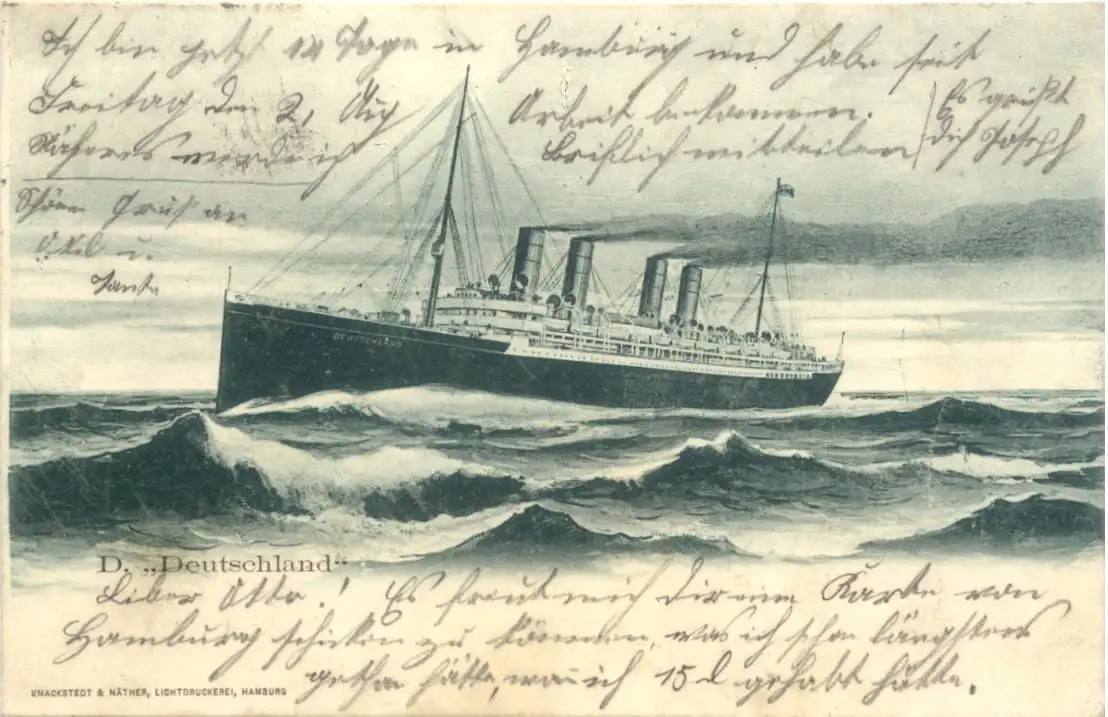 Ich bin jetzt 14 Tage in Hamburg und habe seit
Freitag den 2, Aug Arbeit bekommen.
Näheres werde ich brieflich mitteilen
Es grüßt
dich Joseph
Schöne Gruß an
u.
Tante
DEUTSCHLAND
D. „Deutschland“
Liber Otto! Es freut mich dir eine Karte von
Hamburg schicken zu können, was ich schon längstens
gethan hätte, wen ich 15 d gehabt hätte.
KNACKSTEDT & NÄTHER, LICHTDRUCKEREI, HAMBURG